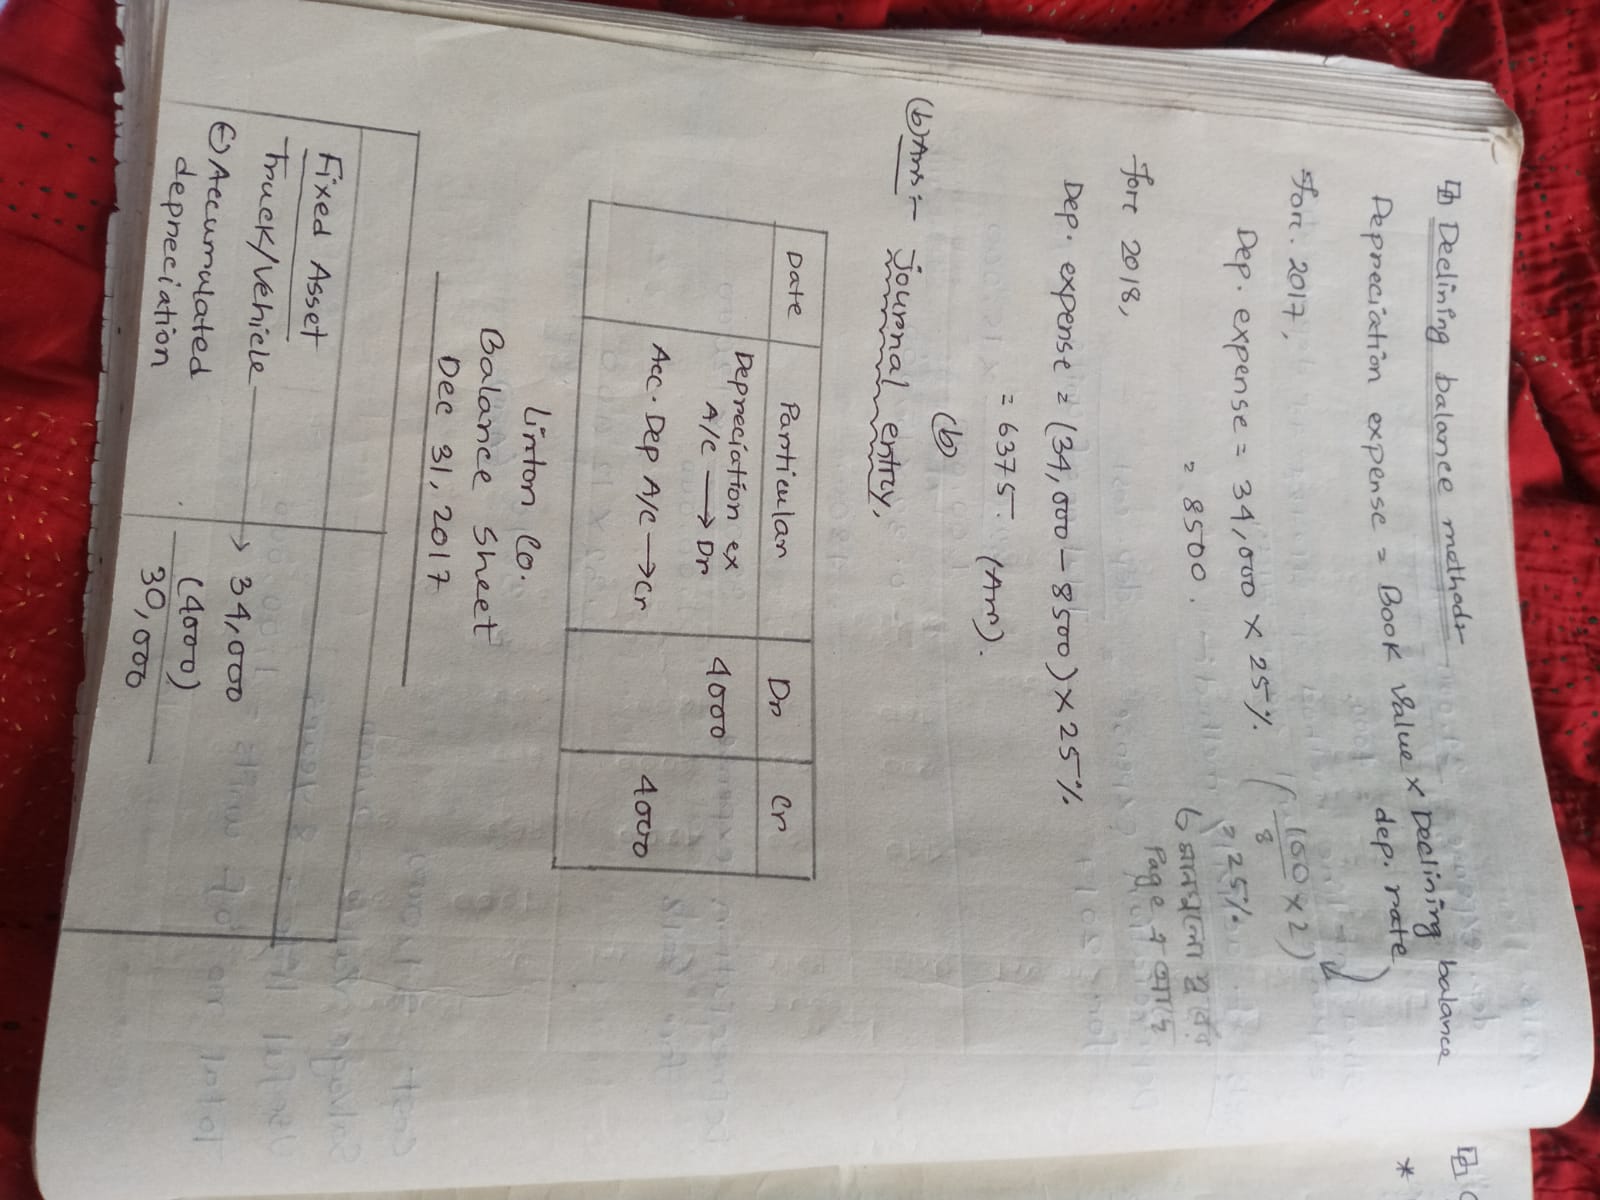 Declining balance methods
Depreciation expense = Book value × Declining balance
dep. rate
For 2017,
Dep. expense = 34,000 × 25%
(100/8 × 2)
= 25%
= 8500.
Page এ আছে
For 2018,
Dep. expense = (34,000 - 8500) × 25%
= 6375. (Ans).
(b)
(b) Ans :- Journal entry,
Date Particular Dr Cr
Depreciation ex
A/c → Dr 4000
Acc. Dep A/c → Cr 4000
Linton Co.
Balance Sheet
Dec 31, 2017
Fixed Asset
Truck/Vehicle → 34,000
(-) Accumulated (4000)
depreciation 30,000
*